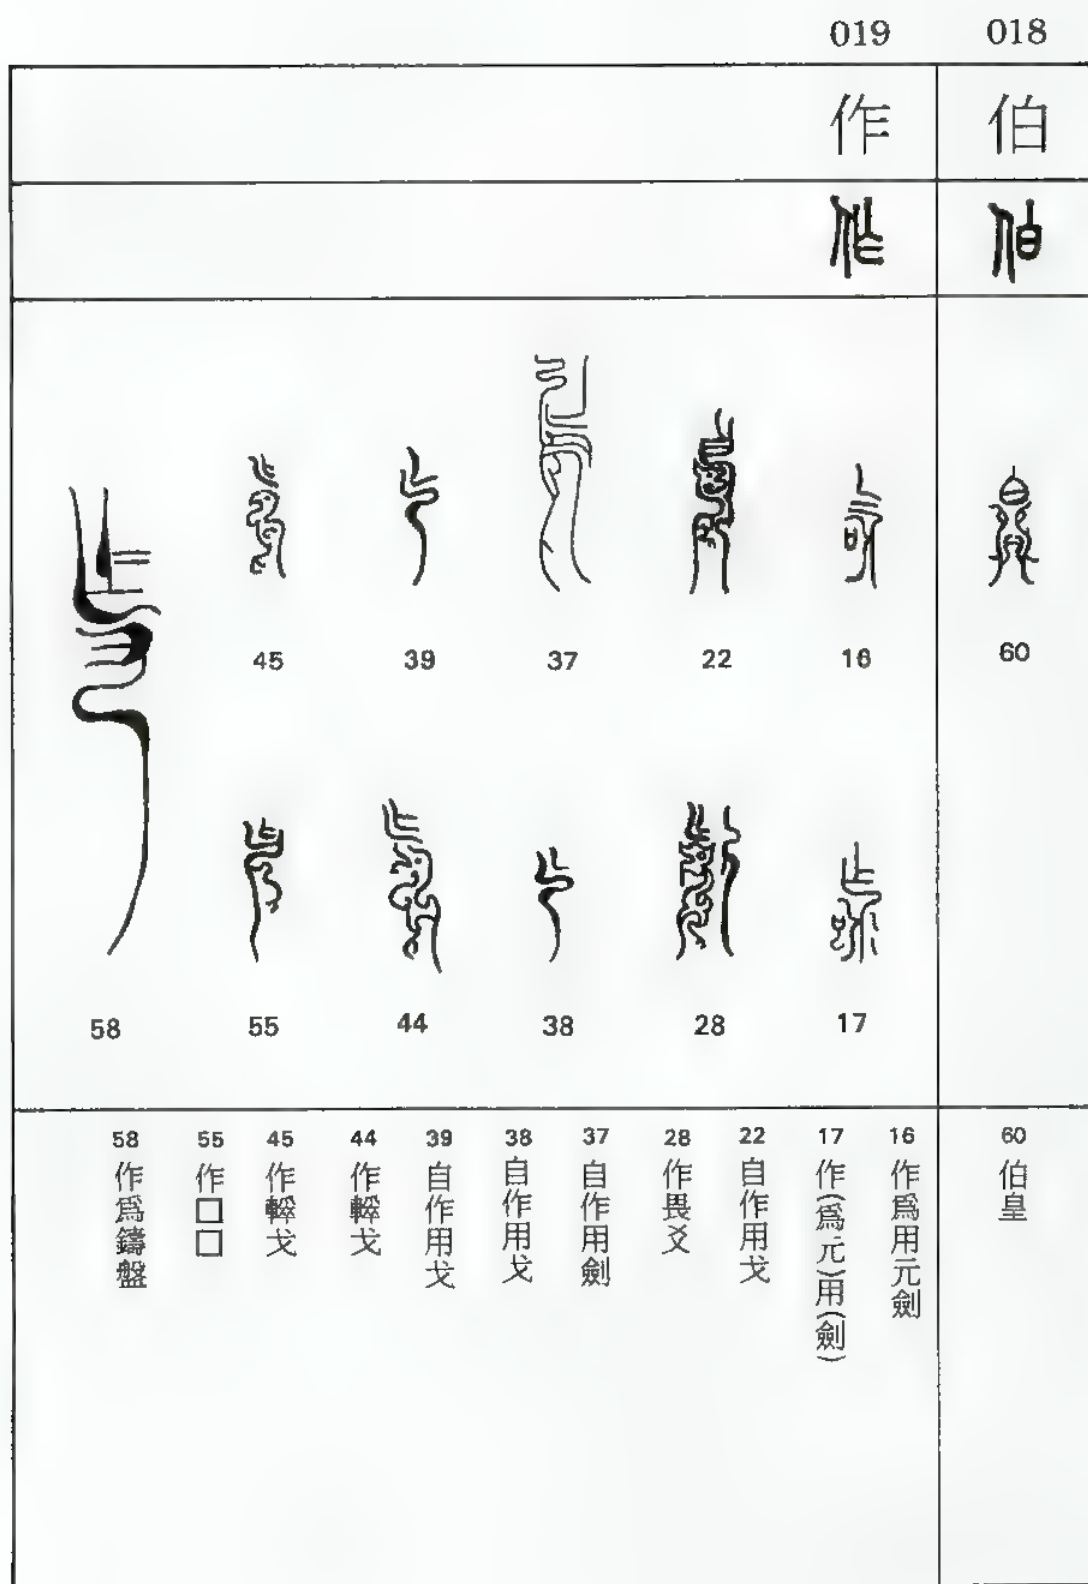 018
伯
伯
60
60 伯皇
019
作
作
16
17
22
28
37
38
39
44
45
55
58
16 作爲用元劍
17 作(爲元)用(劍)
22 自作用戈
28 作畏爻
37 自作用劍
38 自作用戈
39 自作用戈
44 作戈
45 作戈
55 作□□
58 作爲鑄盤